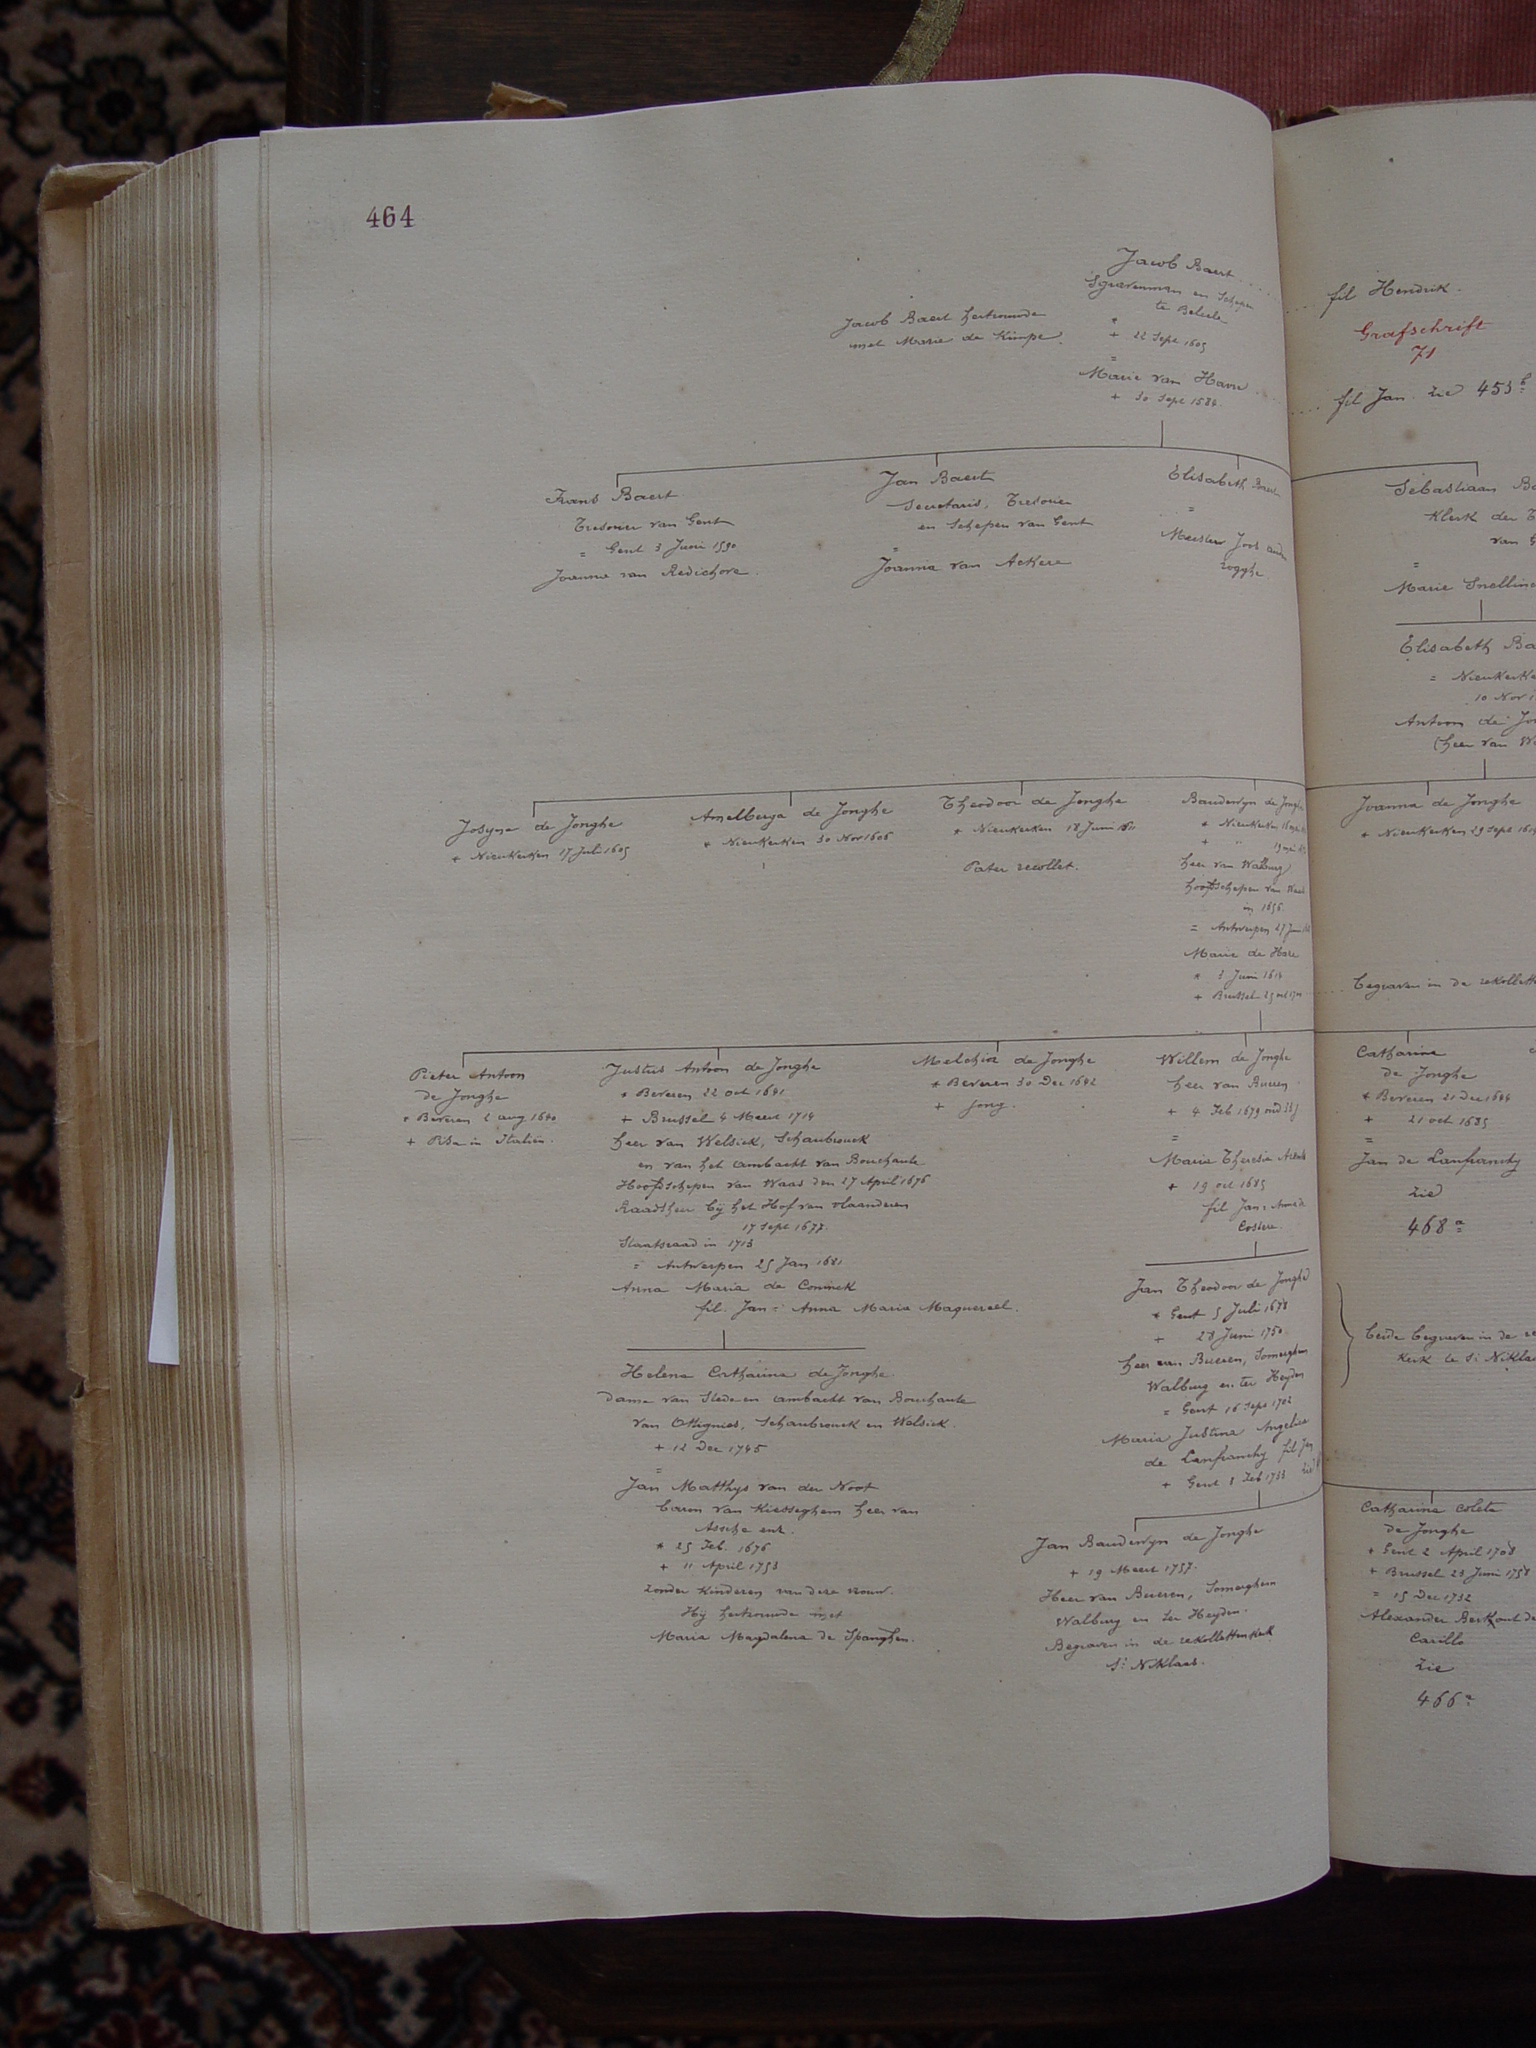 464
Jacob Baert
Sgravenman en Schepen
te Belsele
*
+ 22 Sept 1605
=
Marie van Havre
+ 30 Sept 1584.
Jacob Baert hertrouwde
met Marie de Kimpe.
fil Hendrik.
Grafschrift
71
fil Jan. zie 453 b
Frans Baert
Tresorier van Gent
= Gent 3 Juni 1590
Joanna van Redichove.
Jan Baert
Secretaris, Tresorier
en Schepen van Gent
=
Joanna van Ackere
Elisabeth Baert
=
Meester Joos
Rogghe
Sebastiaan Ba
Klerk der T
van G
=
Marie Snellinc
Elisabeth Ba
= Nieukerke
10 Nov 1
Antoon de Jon
(heer van Wa
Josyne de Jonghe
* Nieukerken 17 Juli 1605
Amelberga de Jonghe
* Nieukerken 30 Nov 1606
Theodoor de Jonghe
* Nieukerken 18 Juni
Pater recollet.
Baudewyn de Jonghe
* Nieukerken
+ " 19
heer van Walburg
hoofdschepen van Waas
in 1656.
= Antwerpen 27 Juni
Marie de Hase
* 3 Juni 1614
+ Brussel 25 oct
Joanna de Jonghe
* Nieukerken 29 Sept
begraven in de rekollette
Pieter Antoon
de Jonghe
* Beveren 2 aug. 1640
+ Pisa in Italien.
Justus Antoon de Jonghe
* Beveren 22 oct 1641
+ Brussel 4 Meert 1714
heer van Welsick, Schaubrouck
en van het ambacht van Bouchaute
Hoofdschepen van Waas den 27 April 1676
Raadsheer bij het Hof van Vlaanderen
17 Sept 1677.
Staatsraad in 1713
= Antwerpen 25 Jan 1681
Anna Maria de Coninck
fil. Jan = Anna Maria Maquereel.
Melchior de Jonghe
* Beveren 30 Dec 1642
+ jong.
Willem de Jonghe
heer van Bueren
+ 4 Feb 1679 oud 33 j
=
Maria Theresia
+ 19 oct 1685
fil Jan = Anna de
Costere.
Catharina
de Jonghe
* Beveren 21 Dec 1644
+ 21 oct 1685
=
Jan de Lanfranchy
zie
468 a
Helena Catharina de Jonghe.
Dame van Stede en ambacht van Bouchaute
van Ottignies, Schaubrouck en Welsick.
+ 12 Dec 1745
=
Jan Matthys van der Noot
baron van Kiesseghem heer van
Assche enz.
* 25 Feb. 1676
+ 11 April 1753
zonder kinderen van deze vrouw.
Hij hertrouwde met
Maria Magdalena de Spanghen.
Jan Theodoor de Jonghe
* Gent 5 Juli 1678
+ 28 Juni 1750.
heer van Bueren, Somerghem
Walburg en ter Heyden
= Gent 16 Sept 1702
Maria Justina Angelica
de Lanfranchy fil Jan
+ Gent 3 Feb 1733 zie
beide begraven in de re
kerk te St Niklaa
Jan Baudewyn de Jonghe
+ 19 Meert 1757.
Heer van Bueren, Somerghem
Walburg en ter Heyden.
Begraven in de rekollettenkerk
St Niklaas.
Catharina Coleta
de Jonghe
* Gent 2 April 1708
+ Brussel 23 Juni 1758
= 15 Dec 1732
Alexander Berkout de
Carillo
zie
466 a